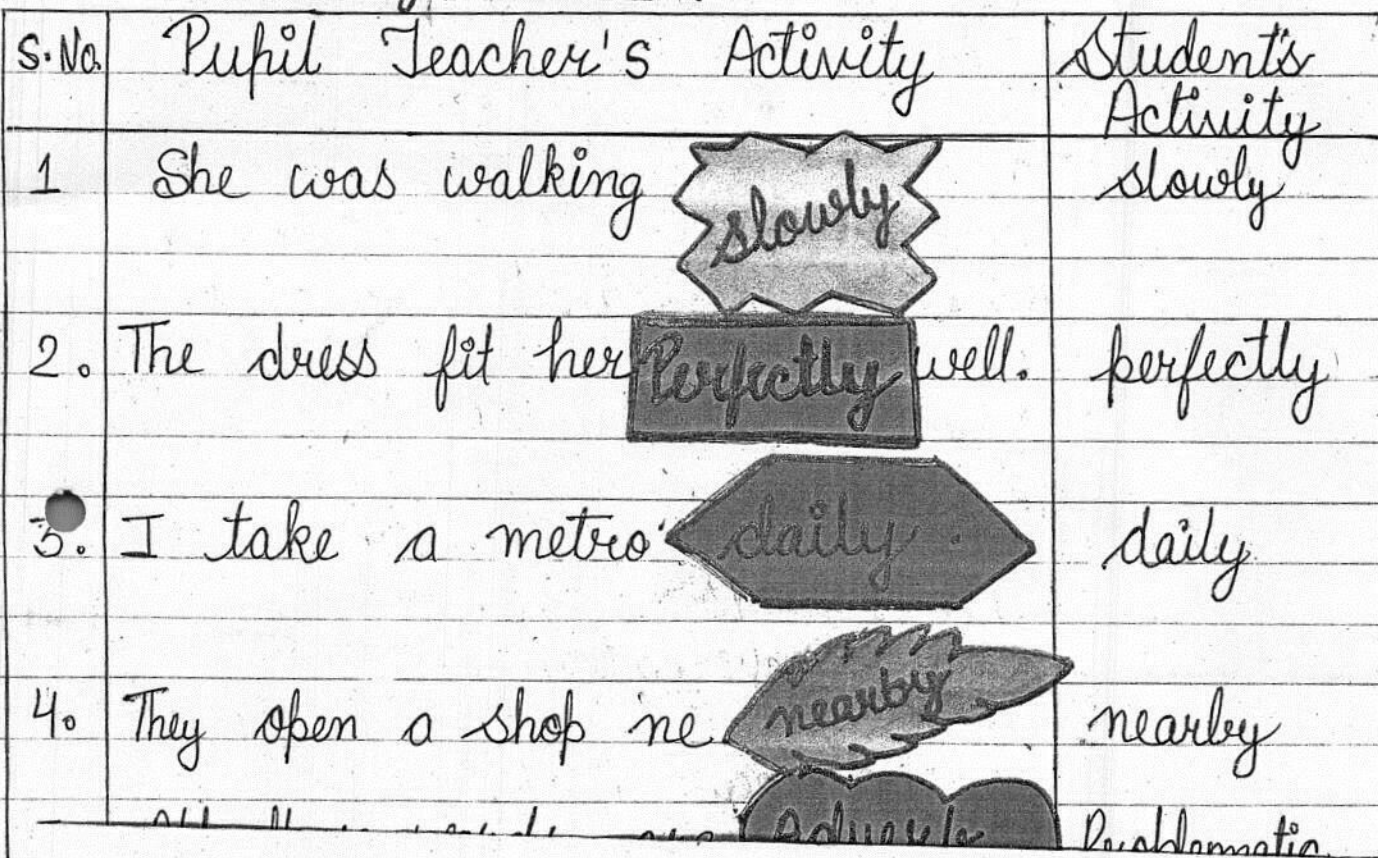 S.No. Pupil Teacher's Activity Student's
Activity
1 She was walking slowly slowly
2. The dress fit her Perfectly well. perfectly
3. I take a metro daily. daily
4. They open a shop ne nearby nearby
Adverb Problematic